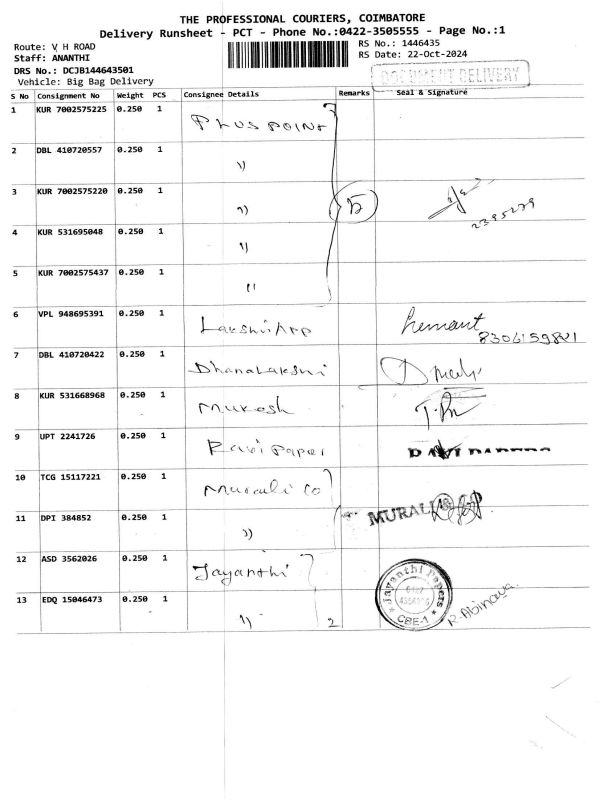 THE PROFESSIONAL COURIERS, COIMBATORE
Delivery Runsheet - PCT - Phone No.:0422-3505555 - Page No.:1
Route: V H ROAD
RS No.: 1446435
Staff: ANANTHI
RS Date: 22-Oct-2024
DRS No.: DCJB144643501
DOCUMENT DELIVERY
Vehicle: Big Bag Delivery
S No Consignment No Weight PCS Consignee Details Remarks Seal & Signature
1 KUR 7002575225 0.250 1 PLUS POINT
2 DBL 410720557 0.250 1 "
3 KUR 7002575220 0.250 1 " 5 2395279
4 KUR 531695048 0.250 1 "
5 KUR 7002575437 0.250 1 "
6 VPL 948695391 0.250 1 Lakshmi App hemant
8306159821
7 DBL 410720422 0.250 1 Dhanalakshmi
8 KUR 531668968 0.250 1 Mukesh
9 UPT 2241726 0.250 1 Ravi Paper RAVI PAPERS
10 TCG 15117221 0.250 1 Murali co
11 DPI 384852 0.250 1 " MURALI
12 ASD 3562026 0.250 1 Jayanthi
Jayanthi Papers
CBE-1
13 EDQ 15046473 0.250 1 " 2 R. Abinaya